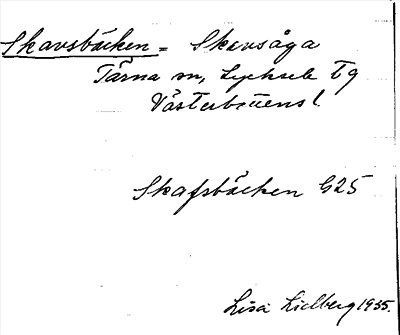 Skavsbäcken = Skevsåga
Tärna sn, Lycksele tg
Västerbottens l.
Skafsbäcken G25
Lisa Lidberg 1935.